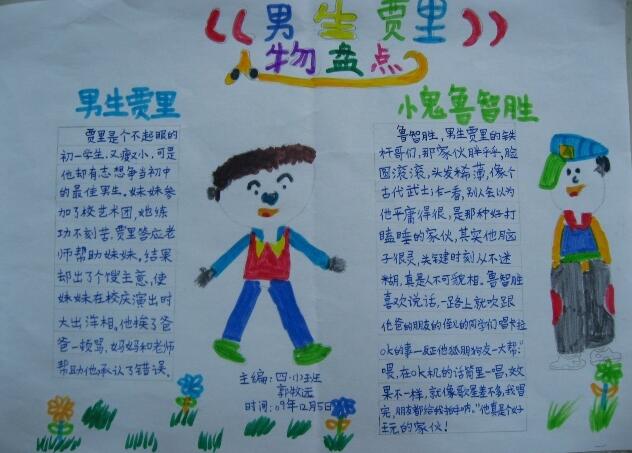 《男生贾里》
人物盘点
男生贾里
贾里是个不起眼的
初一学生，又瘦又小，可是
他却有志想争当初中
的最佳男生。妹妹参
加了校艺术团，她练
功不刻苦，贾里答应老
师帮助妹妹，结果
却出了个馊主意，使
妹妹在校庆演出时
大出洋相。他挨了爸
爸一顿骂，妈妈和老师
帮助他，承认了错误。
主编：四（1）班
郭牧远
时间：09年12月5日
小鬼鲁智胜
鲁智胜，男生贾里的铁
杆哥们，那家伙胖乎乎，脸
圆滚滚，头发稀薄，像个
古代武士。乍一看，别人会以为
他平庸得很，是那种好打
瞌睡的家伙，其实他脑
子很灵，关键时刻从不迷
糊，真是人不可貌相。鲁智胜
喜欢说话，一路上就吹跟
他爸的朋友的侄儿的同学们唱卡拉
ok的事—反正他狐朋狗友一大帮：“
喂，在ok机的话筒里一唱，效
果不一样，就像歌星差不多，我唱
完，朋友都给我拍手呐。”他真是个好
玩的家伙！